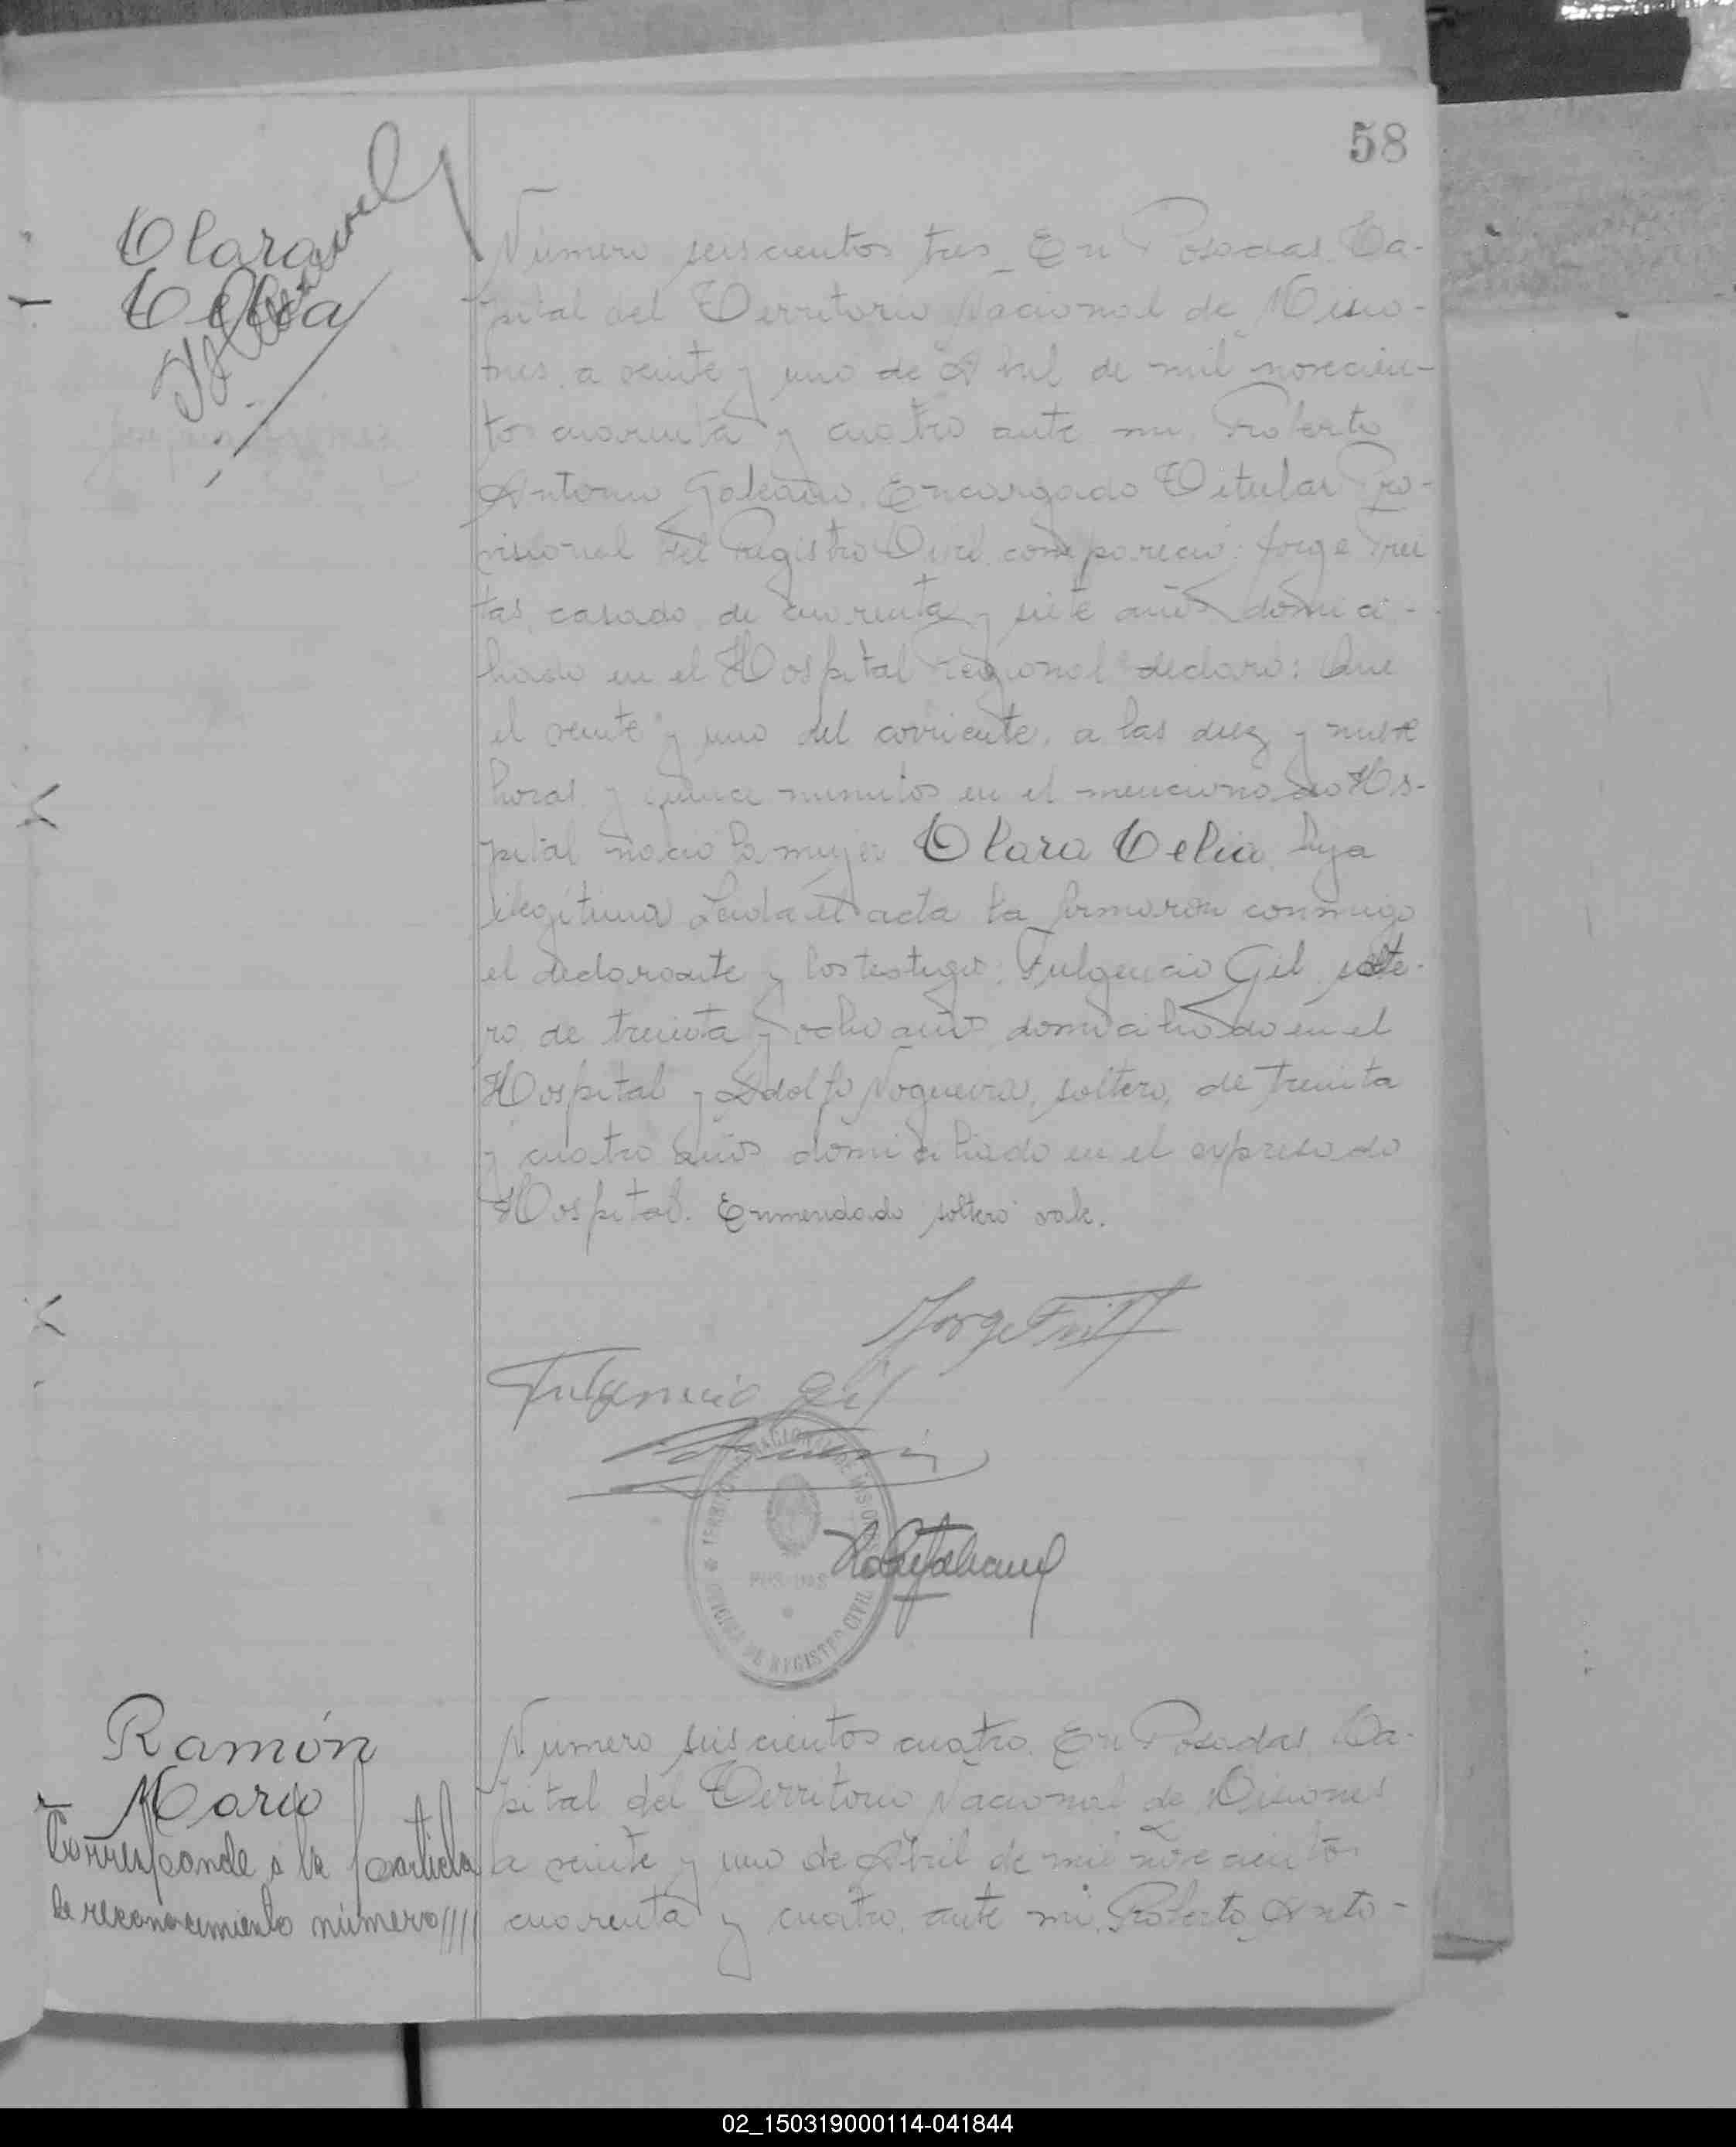 58
Clara
Celia
Número seiscientos tres_ En Posadas, Ca-
pital del Territorio Nacional de Misio-
nes, a veinte y uno de Abril de mil novecien-
tos cuarenta y cuatro ante mi, Roberto
Antonio Galeano, Encargado Titular Pro-
visional del Registro Civil, compareció: Jorge
casado, de cuarenta y siete años domici-
liado en el Hospital regional declaró: Que
el veinte y uno del corriente, a las diez y nueve
horas y quince minutos en el mencionado Hos-
pital nació la mujer Clara Celia, hija
ilegítima Leida el acta la firmaron conmigo
el declarante y los testigos: Fulgencio Gil, solte-
ro, de treinta y ocho años domiciliado en el
Hospital y Adolfo Nogueira, soltero, de treinta
y cuatro años domiciliado en el expresado
Hospital. Enmendado soltero vale.
Jorge
Fulgencio Gil
TERRITORIO NACIONAL DE MISIONES
POSADAS
OFICINA DE REGISTRO CIVIL
Ramón
Mario
Corresponde a la partida
de reconocimiento número////
Numero seiscientos cuatro. En Posadas, Ca-
pital del Territorio Nacional de Misiones
a veinte y uno de Abril de mil novecientos
cuarenta y cuatro, ante mi, Roberto Anto-
02_150319000114-041844